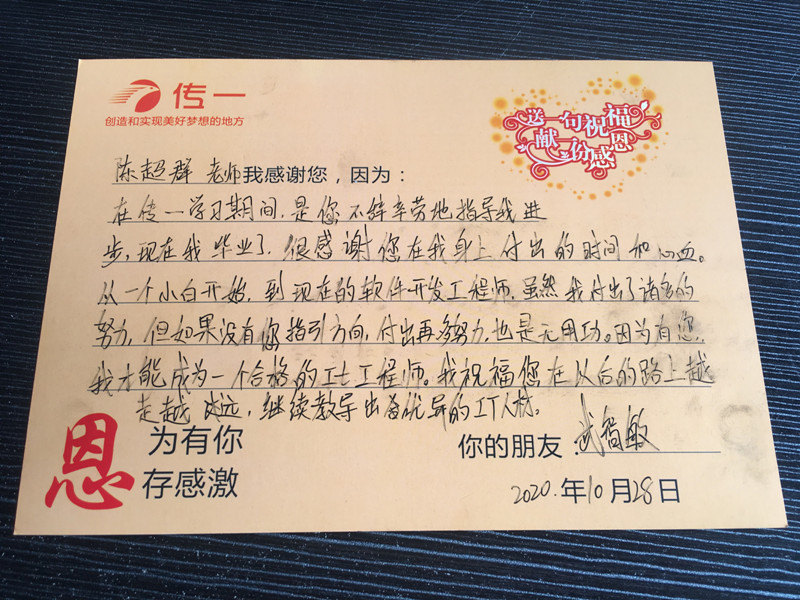 传一
创造和实现美好梦想的地方
送一句祝福
献一份感恩
陈超群 老师我感谢您，因为：
在传一学习期间，是您不辞辛劳地指导我进
步，现在我毕业了，很感谢您在我身上付出的时间和心血。
从一个小白开始，到现在的软件开发工程师，虽然我付出了诸多的
努力，但如果没有您指引方向，付出再多努力，也是无用功。因为有您，
我才能成为一个合格的IT工程师。我祝福您在以后的路上越
走越远，继续教导出各优异的IT人材。
恩 为有你
存感激
你的朋友：武智敏
2020.年10月28日